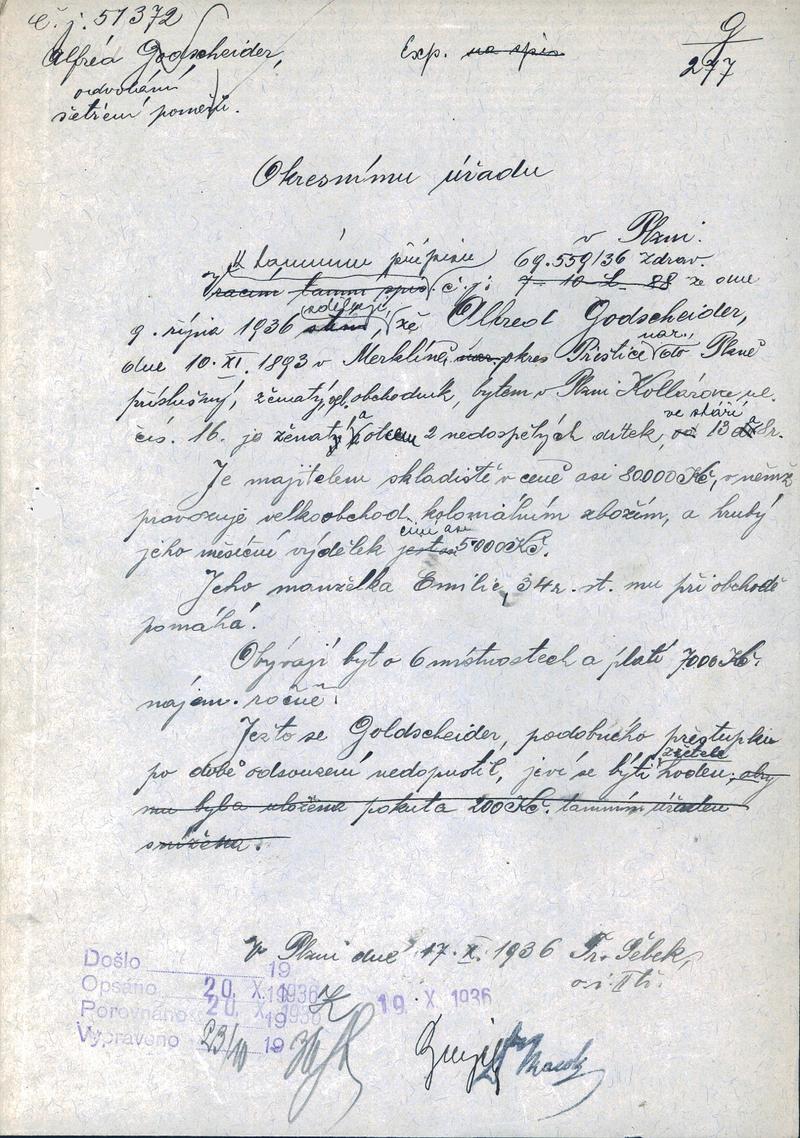 Č. j. 51372
Alfréd Godscheider,
odvolání
šetření poměrů.
Exp. na spis
9
277
Okresnímu úřadu
v Plzni.
K tamnímu přípisu 69.559/36 zdrav.
vracím tamní spis č. j. ze dne
9. října 1936 sděluji, že Alfred Godscheider,
nar.
dne 10. XI. 1893 v Merklíně, okres Přeštice do Plzně
příslušný, ženatý, obchodník, bytem v Plzni Kollárova ul.
čís. 16. je ženatý a otcem 2 nedospělých dítek, ve stáří 13 a 8 r.
Je majitelem skladiště v ceně asi 80000 Kč, v němž
provozuje velkoobchod koloniálním zbožím, a hrubý
jeho měsíční výdělek jest as činí asi 5000 Kč.
Jeho manželka Emilie, 34 r. st. mu při obchodě
pomáhá.
Obývají byt o 6 místnostech a platí 7000 Kč.
nájem. ročně.
Ježto se Goldscheider, podobného přestupku
po době odsouzení nedopustil, jeví se býti zřetele hoden, aby
mu byla uložena pokuta 200 Kč. tamním úřadem
snížena.
V Plzni dne 17. X. 1936
Došlo 19
Opsáno 20. X. 1936
Porovnáno 20. X. 1936
Vypraveno 23/10 19
19. X. 1936